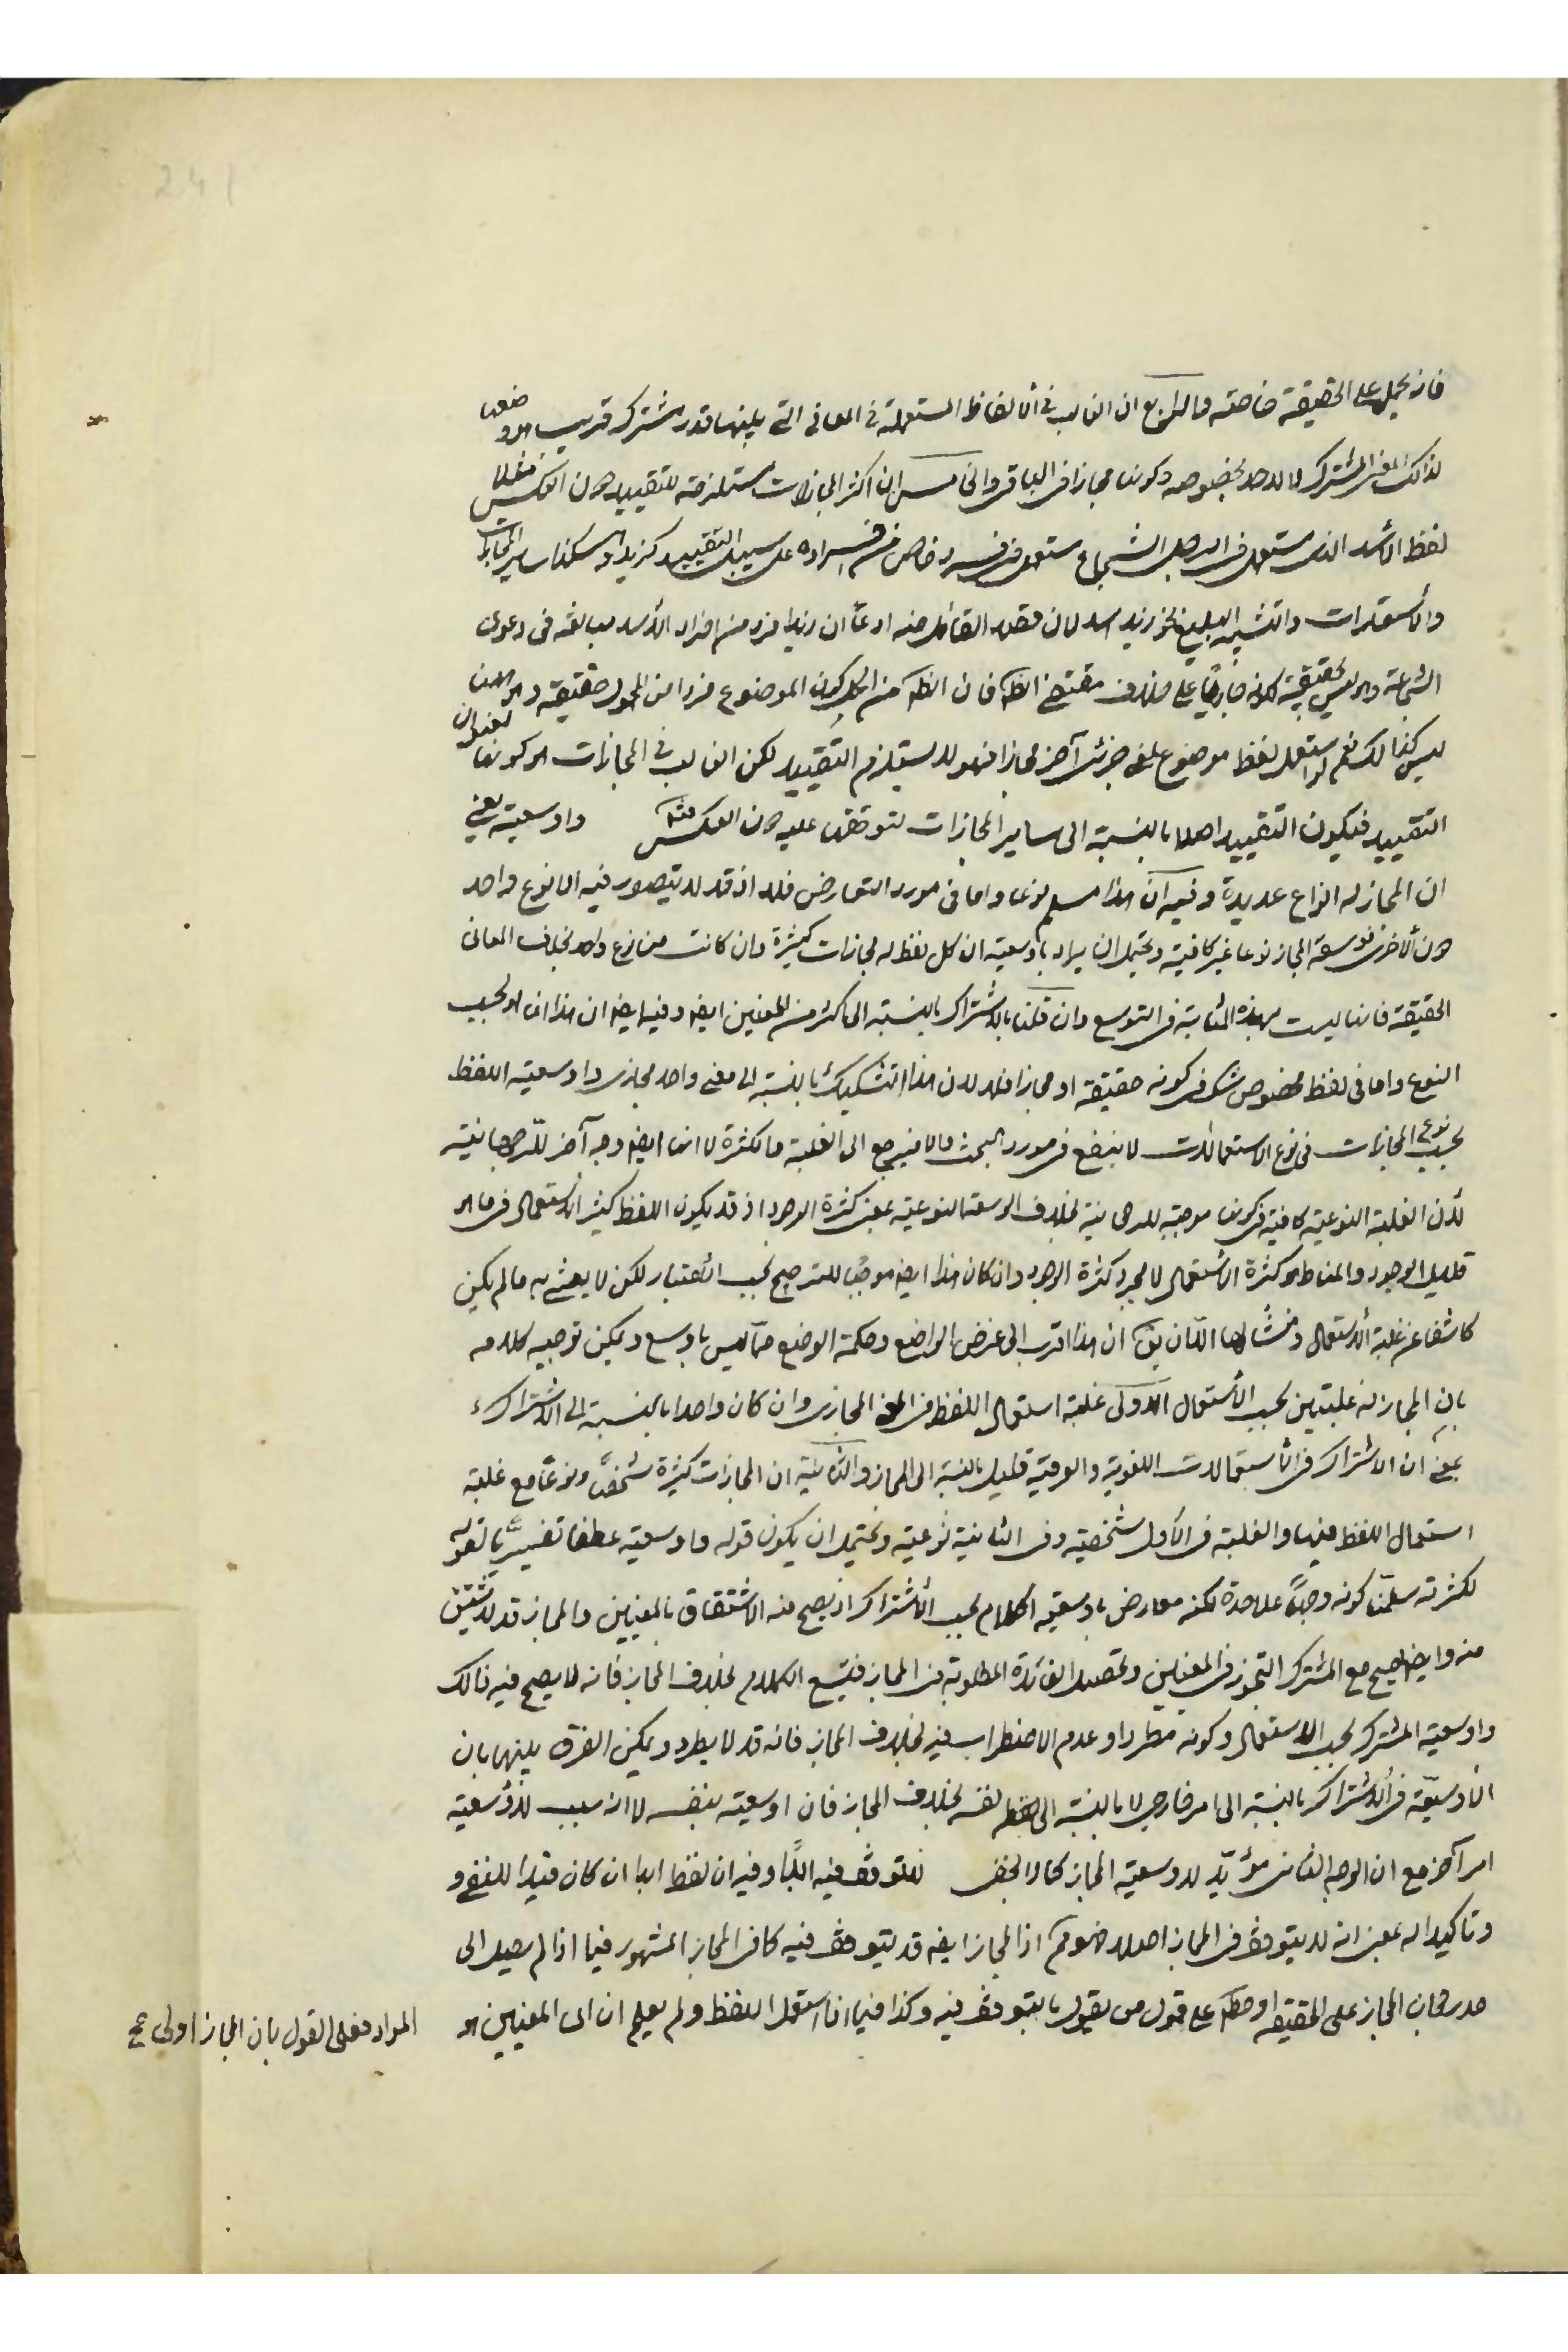 241
فانه يحمل على الحقيقة خاصة والرابع ان الغالب في الالفاظ المستعملة في المعاني التي بينها قدر مشترك قريب هو وضعها
لذلك المعنى المشترك لا لاحدها بخصوصه وكونها مجازا في الباقي والخامس ان اكثر المجازات مستلزمة للتقييد دون العكس فمثلا
لفظ الأسد الذى يستعمل فى الرجل الشجاع يستعمل فى فرد خاص من افراده على سبيل التقييد كزيد وهكذا ساير المجازات
والأستعارات والتشبيه البليغ نحو زيد اسد لان مقصد القائل منه ادعآ ان زيدا فرد من افراد الأسد مبالغة فى دعوى
الشجاعة وهو ليس بحقيقة لكونه جاريا على خلاف مقتضى الظ فان الظ من الحمل كون الموضوع فردا من المحمول حقيقة وهو هنا
ليس كذالك نعم لو استعمل لفظ موضوع لمعنى جزئى آخر مجازا فهو لا يستلزم التقييد لكن الغالب في المجازات هو كونها
التقييد فيكون التقييد اصلا بالنسبة الى ساير المجازات لتوقفها عليه دون العكس منه واوسعية يعني
ان المجاز له انواع عديدة وفيه ان هذا مسلم نوعا واما فى مورد التعارض فلا اذ قد لا يتصور فيه الا نوع واحد
دون الاخرى فوسعة المجاز نوعا غير كافية ويحتمل ان يراد باوسعيته ان كل لفظ له مجازات كثيرة وان كانت من نوع واحد بخلاف المعانى
الحقيقة فانها ليست بهذه المثابة فى التوسع وان قلنا بالاشتراك بالنسبة الى اكثر من المعنيين ايضا وفيه ايضا ان هذا انما هو بحسب
النوع واما فى لفظ مخصوص شك فى كونه حقيقة او مجازا فلا لان هذا التشكيك بالنسبة الى معنى واحد مجازى واوسعية اللفظ
بحسب نوعى المجازات فى نوع الاستعمالات لا ينفع فى مورد البحث والا فيرجع الى الغلبة والكثرة لا انها ايضا وجه آخر للرجحانية
لأن الغلبة النوعية كافية فى كونها موجبة للرجحانية بخلاف الوسعة النوعية بمعنى كثرة الوجود اذ قد يكون اللفظ كثير الأستعمال فى ما هو
قليل الوجود والمناط هو كثرة الأستعمال لا مجرد كثرة الوجود وان كان هذا ايضا موجبا للترجيح بحسب الأعتبار لكن لا يعتنى به ما لم يكن
كاشفا عن غلبة الأستعمال ومنشأ لها الا ان يق ان هذا اقرب الى غرض الواضع وحكمة الوضع مما ليس باوسع ويمكن توجيه كلامه
بان المجاز له غلبتين بحسب الأستعمال الاولى غلبة استعمال اللفظ فى المعنى المجازى وان كان واحدا بالنسبة الى الاشتراك
بمعنى ان الاشتراك فى الاستعمالات اللغوية والعرفية قليل بالنسبة الى المجاز والثانية ان المجازات كثيرة شخصا ونوعا مع غلبة
استعمال اللفظ فيها والغلبة فى الأول شخصية وفى الثانية نوعية ويحتمل ان يكون قوله واوسعية عطفا تفسيريا لقوله
لكثرته سلمنا كونه وجها على حدة لكنه معارض باوسعية الكلام بحسب الأشتراك اذ يصح منه الاشتقاق بالمعنيين والمجاز قد لا يشتق
منه وايضا يصح مع المشترك التجوز فى المعنيين وتحصيل الفائدة المطلوبة من المجاز فيتسع الكلام بخلاف المجاز فانه لا يصح فيه ذالك
واوسعية المشترك بحسب الاستعمال وكونه مطردا وعدم الاضطراب فيه بخلاف المجاز فانه قد لا يطرد ويمكن الفرق بينهما بان
الأوسعية فى الاشتراك بالنسبة الى امر خارجى لا بالنسبة الى نفسه بخلاف المجاز فان اوسعيته بنفسه لا انه سبب لاوسعية
امر آخر مع ان الوجه الثانى مؤيد لاوسعية المجاز كما لا يخفى فلا توقف فيه ابدا وفيه ان لفظ ابدا ان كان قيدا للنفى و
وتاكيدا له بمعنى انه لا يتوقف فى المجاز اصلا فهو مم اذ المجاز ايضا قد يتوقف فيه كما فى المجاز المشهور فيما اذا لم يصل الى
حد رجحان المجاز على الحقيقة او مطلقا على قول من يقول بالتوقف فيه وكذا فيما اذا استعمل اللفظ ولم يعلم ان اى المعنيين هو
المراد فعلى القول بان المجاز اولى